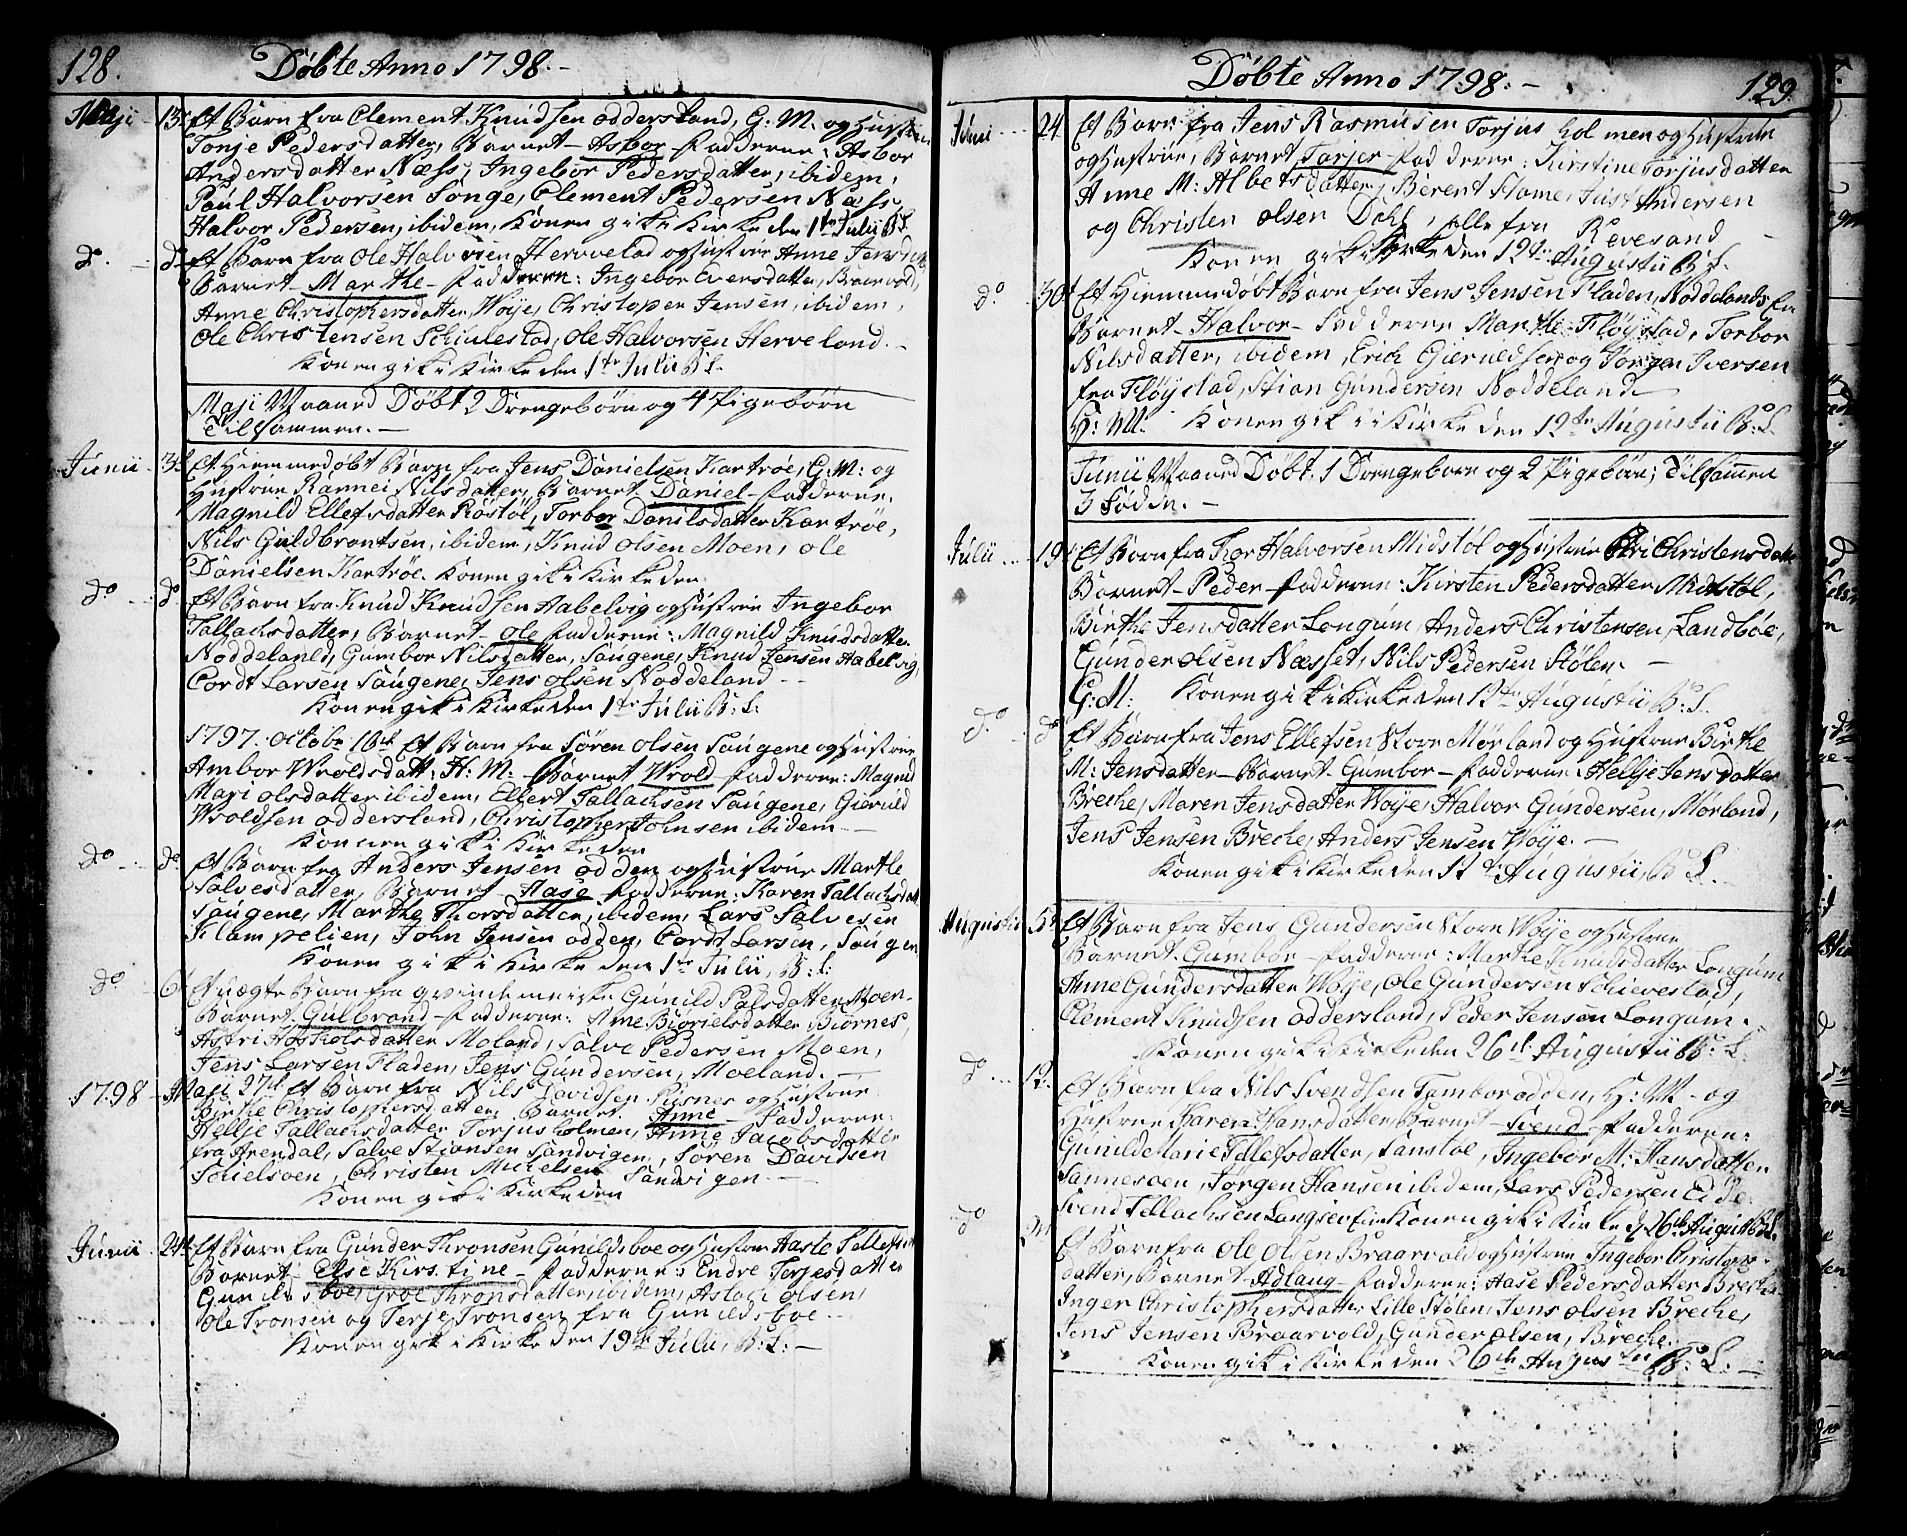 128.
Døbte Anno 1798.-
Maji 13. Et Barn fra Clement Knudsen oddersland, G: M. og Hustrue
Tonje Pedersdatter, Barnet - Asbor - fadderne: Asbor
Andersdatter Næss, Ingebor Pedersdatter, ibidem,
Povl Halvorsen Songe, Clement Pedersen Næss,
Halvor Pedersen, ibidem, Konen gik i Kirke den 1te Julii B: L.
do. do Et Barn fra Ole Halvorsen Hervelad og Hustrue Anne Jensd.
Barnet - Marthe - fadderne: Ingebor Eversdatter, Braarvold,
Anne Christophersdatter Wøije, Christopher Jensen, ibidem,
Ole Christensen Schiulestad, Ole Halvorsen Herveland. -
Konen gik i Kirke den 1te Julii B: L.
Maji Maaned Døbt 2 Drengebørn og 4 Pigebørn
Tilsammen. -
Junii 3. Et Hiemmedøbt Barn fra Jens Danielsen Kartrøe, G: M: og
Hustrue Rannei Nilsdatter, Barnet - Daniel - fadderne,
Magnild Ellefsdatter Røstøl, Torbor Danilsdatter Kartrøe,
Nils Guldbrantsen, ibidem, Knud olsen Moen, ole
Danielsen Kartrøe. Konen gik i Kirke den
do do Et Barn fra Knud Knudsen Aabelvig og Hustrue Ingebor
Tallachsdatter, Barnet - ole - fadderne: Magnild Knudsdatter
Noddeland, Gumbor Nilsdatter, Saugene, Knud Jensen Aabelvig,
Cordt Larsen Saugene, Jens olsen Noddeland - -
Konen gik i Kirke den 1te Julii B: L:
1797. octobr 16de Et Barn fra Søren olsen Saugene og Hustrue
Ambor Wroldsdatt: H: M: - Barnet Wrold - fadderne: Magnild
Mari olsdatter ibidem, Elbert Tallachsen Saugene, Gieruld
Wroldsen oddersland, Christopher Johnsen ibidem -
Konen gik i Kirke den
do do Et Barn fra Anders Jensen odden og Hustrue Marthe
Salvesdatter, Barnet - Aase - fadderne: Karen Tallachsdatt
Saugene, Marthe Thorsdatter, ibidem, Lars Salvesen
Klampelien, John Jensen odden, Cordt Larsen, Saugen
Konen gik i Kirke den 1te Julii, B: L:
do 6 Et uægte Barn fra qvindemeniske Gunild Salsdatter Moen -
Barnet - Gulbrand - fadderne: Anne Biørielsdatter Biørnes,
Astri Hoskolsdatter Moland, Salve Pedersen Moen,
Jens Larsen Fladen, Jens Gundersen, Moeland. -
1798 - Maji 27d Et Barn fra Nils Davidsen Pusnes og Hustrue
Birthe Christophersdatter, Barnet - Anne - fadderne:
Hellje Tallachsdatter Torjusholmen, Anne Jacobsdatter
fra Arendal, Salve Stiansen Sandvigen, Søren Davidsen
Schielsøen, Christen Michelsen Sandvigen -
Konen gik i Kirke den
Junii 24d Et Barn fra Gunder Thronsen Gunildsboe og Hustrue Aaste
Barnet - Else Kirstine - fadderne: Endre Terjesdatter
Gunildsboe, Groe Thronsdatter, ibidem, Aslach olsen,
ole Tronsen og Terje Tronsen fra Gunildsboe -
Konen gik i Kirke den 19de Julii, B: L: -
Døbte Anno 1798. -
129.
Junii 24 Et Barn fra Jens Rasmusen Torjusholmen og Hustrue
og Hustrue, Barnet Torjer - fadderne: Kirstine Torjusdatter
Anne M: Albetsdatter, Berent Home, Just Andersen
og Christen olsen Dahl, alle fra Revesand -
Konen gik i Kirke den 12te Augustii B: L.
do 30d Et Hiemmedøbt Barn fra Jens Jensen Fladen, Noddelands Eie
Barnet - Halvor - fadderne Marthe Fløystad, Torbor
Nilsdatter, ibidem, Erich Gieruldsen og Jørgen Iversen
fra Fløystad, Stian Gundersen Noddeland
H: M: Konen gik i Kirke den 12te Augustii B: L.
Junii Maaned Døbt 1 Drengeborn og 2 Pigebørn; Tilsamen
3 Føden. -
Julii 19 Et Barn fra Thor Halvorsen Midstøl og Hustrue Siri Christensdatt
Barnet - Peder - fadderne: Kirsten Pedersdatter Midstøl,
Birthe Jensdatter Longum, Anders Christensen, Landbøe,
Gunder olsen Næsset, Nils Pedersen Stølen. -
G: M: Konen gik i Kirke den 12te Augustii B: L.
do do Et Barn fra Jens Ellefsen Store Mørland og Hustrue Birthe
M: Jensdatter - Barnet - Gumbor - fadderne: Hellje Jensdatter
Breche, Maren Jensdatter Wøije, Halvor Gundersen, Mørland,
Jens Jensen Breche, Anders Jensen Wøije. -
Konen gik i Kirke den 12te Augustii, B: L.
Augustii 5. Et Barn fra Jens Gundersen Store Wøije og Hustrue
Barnet - Gumbor - fadderne: Marthe Knudsdatter Longum
Anne Gundersdatter Wøije, Ole Gundersen Schirestad,
Clement Knudsen oddersland, Peder Jensen Longum.
Konen gik i Kirke den 26de Augustii B: L.
do 12. Et Barn fra Nils Svendsen Tamborodden, H: M - og
Hustrue Karen Hansdatter, Barnet - Svend - fadderne:
Gunild Marie Tellefsdatter, Sanstøe, Ingebor M: Hansdatter
Sannesoen, Jørgen Hansen ibidem, Lars Pedersen Eide
Svend Tellachsen Langsev Konen gik i Kirke d 26de Augusti B: L.
do Et Barn fra Ole olsen Braarvold og Hustrue Ingebor Christoph
datter, Barnet - Adlaug - fadderne: Aase Pedersdatter Breche,
Inger Christophersdatter Lille Stølen, Jens olsen Breche,
Jens Jensen Braarvold, Gunder olsen, Breche.
Konen gik i Kirke den 26de Augustii B: L: -